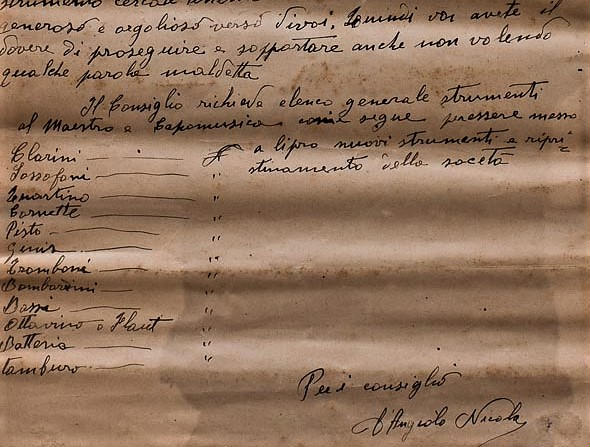 strumento
generoso e orgolioso verso di voi. Quindi voi avete il
dovere di proseguire e sopportare anche non volendo
qualche parola maldetta
Il Consiglio richieda elenco generale strumenti
al Maestro e Capomusica come segue pressere messo
Clarini — " a lipro nuovi strumenti e ripri=
Sassofoni — " stinamento della società
Quartino — "
Cornette — "
Pisto — "
Genis — "
Tromboni — "
Bombardini — "
Bassi — "
Ottavino o Flaut "
Batteria — "
tamburo — "
Per i consiglio
D'Angiolo Nicola